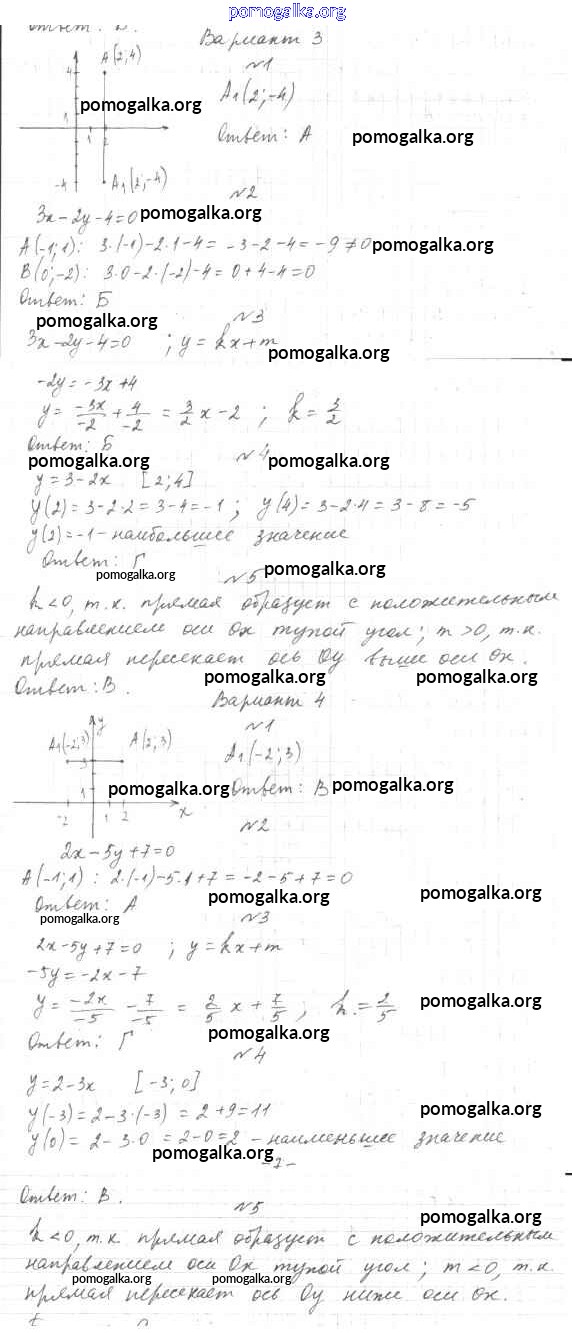 pomogalka.org
Ответ: В.
Вариант 3
A(2;4)
№1
4
pomogalka.org
A₁(2;-4)
Ответ: А
pomogalka.org
1 2
-4
A₁(2;-4)
№2
3x-2y-4=0
pomogalka.org
A(-1;1): 3·(-1)-2·1-4= -3-2-4=-9≠0
pomogalka.org
B(0;-2): 3·0-2·(-2)-4=0+4-4=0
Ответ: Б
pomogalka.org
№3
3x-2y-4=0 ; y=kx+m
pomogalka.org
-2y=-3x+4
y= -3x/-2 + 4/-2 = 3/2 x-2 ; k= 3/2
Ответ: Б
pomogalka.org
№4
pomogalka.org
y=3-2x [2;4]
y(2)=3-2·2=3-4=-1 ; y(4)=3-2·4=3-8=-5
y(2)=-1-наибольшее значение
Ответ: Г
pomogalka.org
№5
pomogalka.org
k<0, т.к. прямая образует с положительным
направлением оси Ox тупой угол; m>0, т.к.
прямая пересекает ось Oy выше оси Ox.
Ответ: В.
pomogalka.org
pomogalka.org
Вариант 4
y
№1
A₁(-2;3)
A(2;3)
A₁(-2;3)
3
1
pomogalka.org
Ответ: В
pomogalka.org
-2 1 2 x
№2
2x-5y+7=0
A(-1;1): 2·(-1)-5·1+7=-2-5+7=0
pomogalka.org
pomogalka.org
Ответ: А
pomogalka.org
№3
2x-5y+7=0 ; y=kx+m
-5y=-2x-7
y= -2x/-5 - 7/-5 = 2/5 x+ 7/5 ; k= 2/5
pomogalka.org
pomogalka.org
Ответ: Г
№4
y=2-3x [-3;0]
y(-3)=2-3·(-3)=2+9=11
pomogalka.org
y(0)=2-3·0=2-0=2-наименьшее значение
pomogalka.org
Ответ: В.
№5
pomogalka.org
k<0, т.к. прямая образует с положительным
направлением оси Ox тупой угол; m<0, т.к.
pomogalka.org
pomogalka.org
прямая пересекает ось Oy ниже оси Ox.